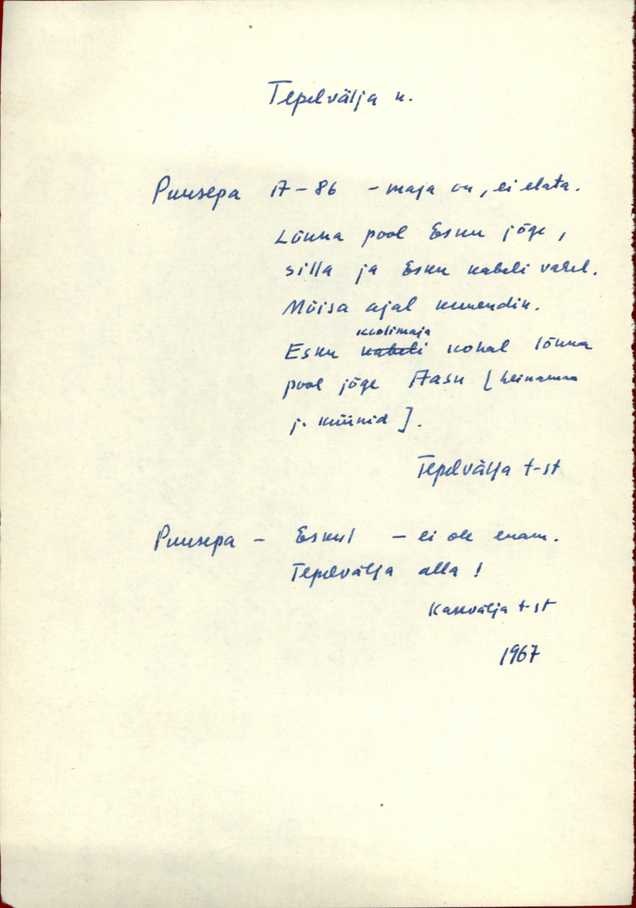 Tepelvälja k.
Puusepa 17-86 - maja on, ei elata.
Lõuna pool Esku jõge,
silla ja Esku kabeli vahel.
Mõisa ajal
koolimaja
Esku kabeli kohal lõuna
pool jõge Aasu [heinamaa
j. küünid].
Tepelvälja t-st
Puusepa - Eskul - ei ole enam.
Tepelvälja alla!
Kasevälja t-st
1967